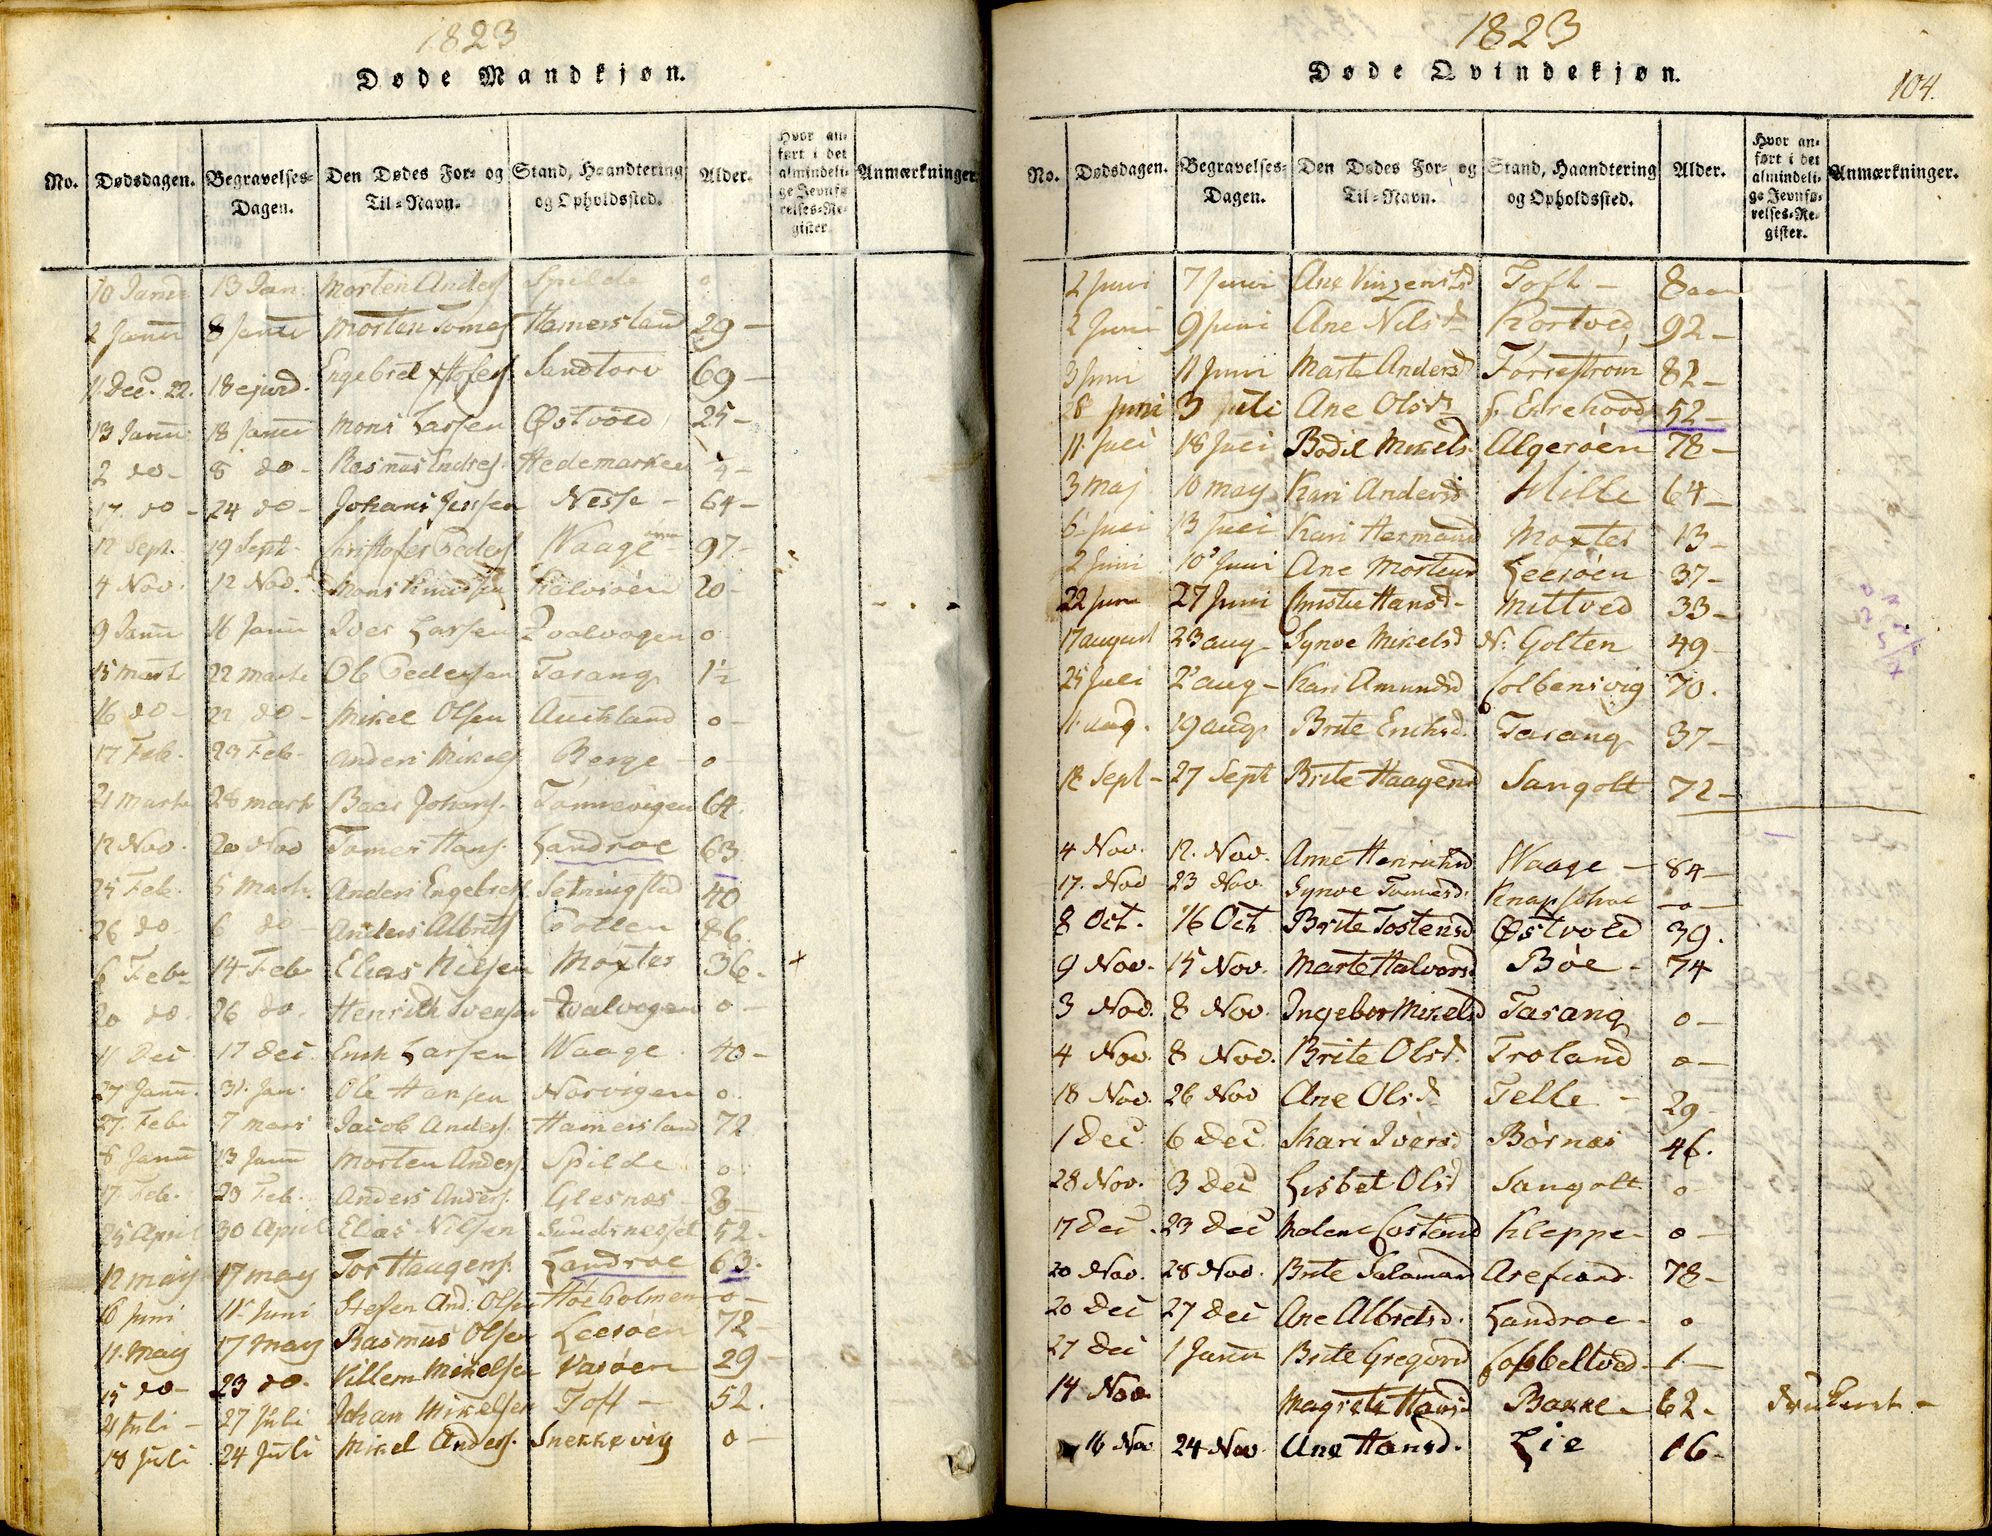 1823
Døde Mandkjøn.
No. Dødsdagen. Begravelses-Dagen. Den Dødes For- og Til-Navn. Stand, Haandtering og Opholdssted. Alder. Hvor anført i det almindelige Jevnførelses-Register. Anmærkninger.
10 Janu 13 Jan. Morten Anders Spilde 0
2 Janu 8 Janu Morten Tomes Hamersland 29 –
11 Dec. 22. 18 ejusd. Engebret Sandtorv 69 –
13 Janu 18 Janu Mons Larsen Østvold 25 –
2 do – 8 do – Rasmus Endres. Hedemarken
17 do – 24 do – Johans Jensen Nesse – 64 –
12 Sept. 19 Sept. Christofer Peders Waage 97 –
4 Nov. 12 Nov. Mons Knudsen 20 –
9 Janu 16 Janu Iver Larsen Qvalvogen 0
15 Marts 22 Marts Ole Pedersen Tarang 1½
16 do – 22 do – Mikel Olsen Auchland 0 –
17 Feb. 23 Feb. Anders Mikels Berge – 0 –
21 Marts 28 Marts Baar Johans. Tømmevigen 64.
12 Nov. 20 Nov Tomes Hans. Landroe 63
25 Feb. 5 Marts. Anders Engebrets. Setningstad 40
26 do 6 do – Anders Albrets 86.
6 Feb. 14 Feb Elias Nilsen Møxter 36. +
20 do. 26 do. Henrich Ivensen Qvalvogen 0 –
11 Dec 17 Dec. Erik Larsen Waage. 40 –
27 Janu. 31. Jan. Ole Hansen Norvigen 0.
27. Feb. 7 Mars Jacob Anders. Hamersland 72
8 Janu 13 Janu Morten Anders. Spilde 0.
17. Feb. 23 Feb. Anders Anders. Glesnæs – 3 –
25 April 30 April Elias Nilsen Sundsnesset 52.
12 May 17 May Tor Haagens. Landroe 63.
6 Juni 11 Juni And. Olsen Høeholmen – 0 –
11. May 17 May Rasmus Olsen Leerøen 72 –
15 do – 23 do. Villem Mikelsen Varøen 29 –
21 Juli – 27 Juli Johan Mikelsen Toft – 52.
18 Juli 24 Juli Mikel Anders. Snekkevig 0 –
1823
Døde Qvindekjøn.
104.
No. Dødsdagen. Begravelses-Dagen. Den Dødes For- og Til-Navn. Stand, Haandtering og Opholdssted. Alder. Hvor anført i det almindelige Jevnførelses-Register. Anmærkninger.
2 Juni 7 Juni Ane Vinzensd Toft – 8 aar
2 Juni 9 Juni Ane Nilsd Kortved 92 –
3 Juni 11 Juni Marte Andersd Førrestrøm 82 –
28 Juni 3 Juli Ane Olsd 52 –
11. Juli 18 Juli Bodil Mikels. Algerøen 78 –
3 Maj 10 May Kari Andersd Hille 64 –
6 Juli 13 Juli Kari Hermansd Møxter 13 –
2 Juni 10 Juni Ane Mortensd Leerøen 37 –
22 Juni 27 Juni Christie Hansd – Mittved 33 –
17 August 23 Aug Synve Mikelsd N. Golten 49 –
25 Juli 2 Aug – Kari Amundsd Colbensvig 70.
11. Aug. 19 Aug. Brite Erichsd. Tarang 37 –
12 Sept – 27 Sept Brite Haagensd Sangolt 72 –
4 Nov. 12. Nov. Anne Henrichsd Waage – 84 –
17. Nov 23 Nov. Synve Tomesd. Knapschoe – 0 –
8 Oct. 16 Oct Brite Tostensd Østvold 39.
9 Nov. 15 Nov. Marte Halvorsd Bøe – 74
3 Nov. 8 Nov. Ingebor Mikelsd Tarang 0 –
4 Nov. 8 Nov. Brite Olsd. Troland 0 –
18 Nov. 26 Nov Ane Olsd. Telle – 29 –
1 Dec. 6 Dec. Kari Iversd Børnæs 46.
28 Nov. 3 Dec Lisbet Olsd Sangolt 0 –
17 Dec. 23 Dec Malene Kleppe – 0 –
20 Nov. 28 Nov. Brite Salamansd 78 –
20 Dec 27 Dec Ane Albretsd. Landroe – 0
27 Dec 1 Janu Brite Gregorsd Cobbeltved – 1 –
14 Nov. Magrete Hansd Bakke – 62 – druknet –
16 Nov 24 Nov. Ane Hansd. Lie 16 –